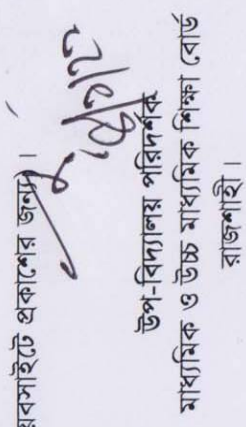 য়বসাইটে প্রকাশের জন্য)।
উপ-বিদ্যালয় পরিদর্শক
মাধ্যমিক ও উচ্চ মাধ্যমিক শিক্ষা বোর্ড
রাজশাহী।